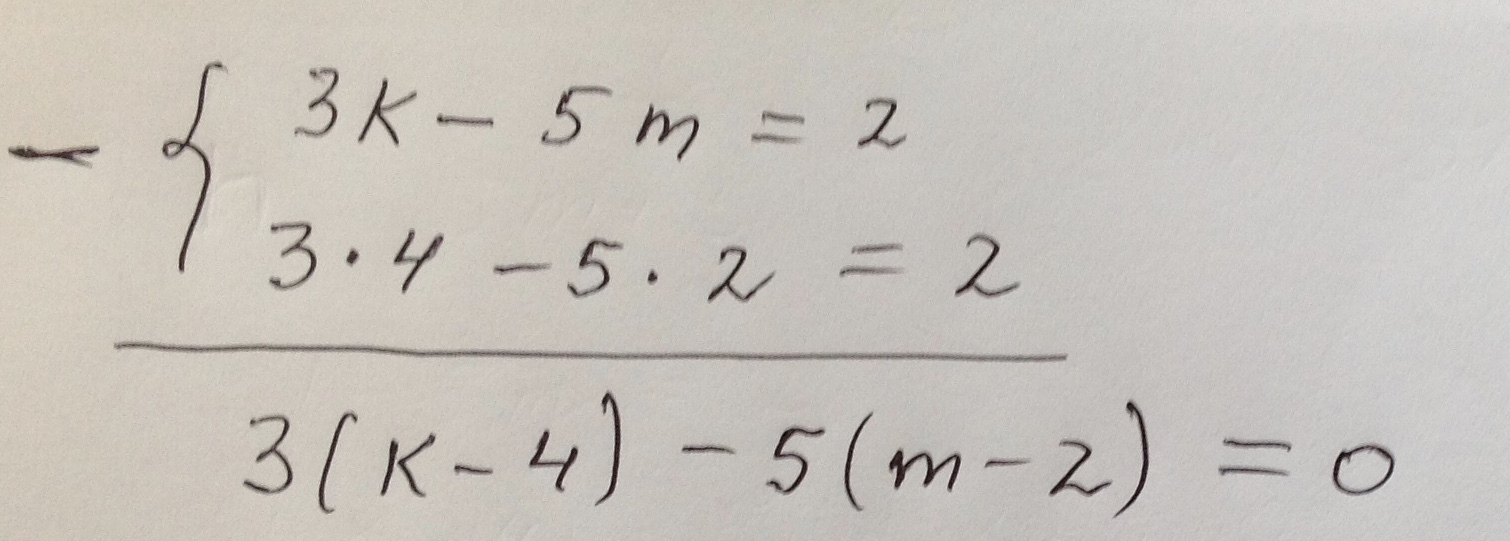 - { 3k - 5m = 2
3 · 4 - 5 · 2 = 2
3(k - 4) - 5(m - 2) = 0